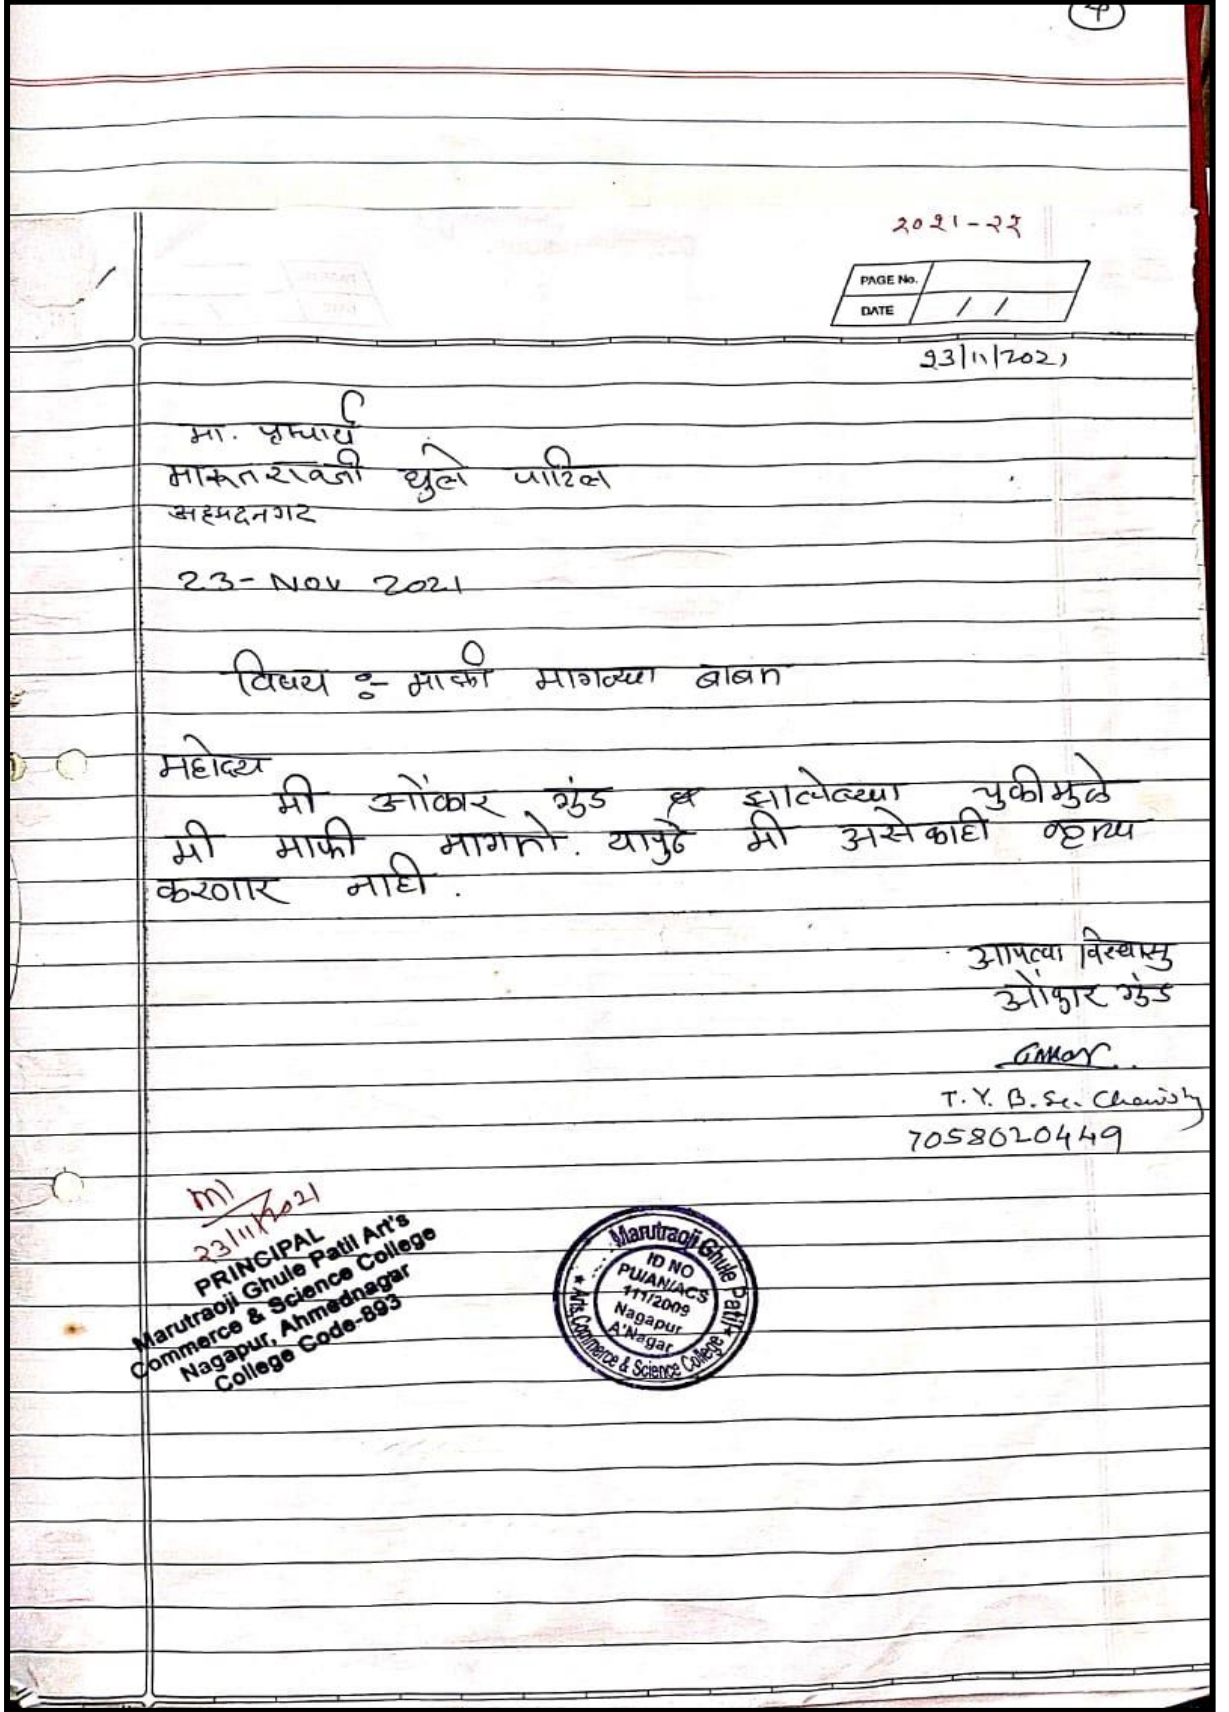 २०२१-२२
PAGE No.
DATE / /
23/11/2021
मा. प्राचार्य
मारूतरावजी घुले पाटिल
अहमदनगर
23-Nov 2021
विषय :- माफी मागण्या बाबत
महोदय
मी ओंकार गुंड झालेल्या चुकीमुळे
मी माफी मागतो. यापुढे मी असे काही कृत्य
करणार नाही.
आपला विश्वासु
ओंकार गुंड
Omkar
T.Y. B.Sc. Chemistry
7058020449
23/11/2021
PRINCIPAL
Marutraoji Ghule Patil Art's
Commerce & Science College
Nagapur, Ahmednagar
College Code-893
Marutraoji Ghule Patil
★ Arts, Commerce & Science College ★
ID NO
PU/AN/ACS
111/2009
Nagapur
A'Nagar